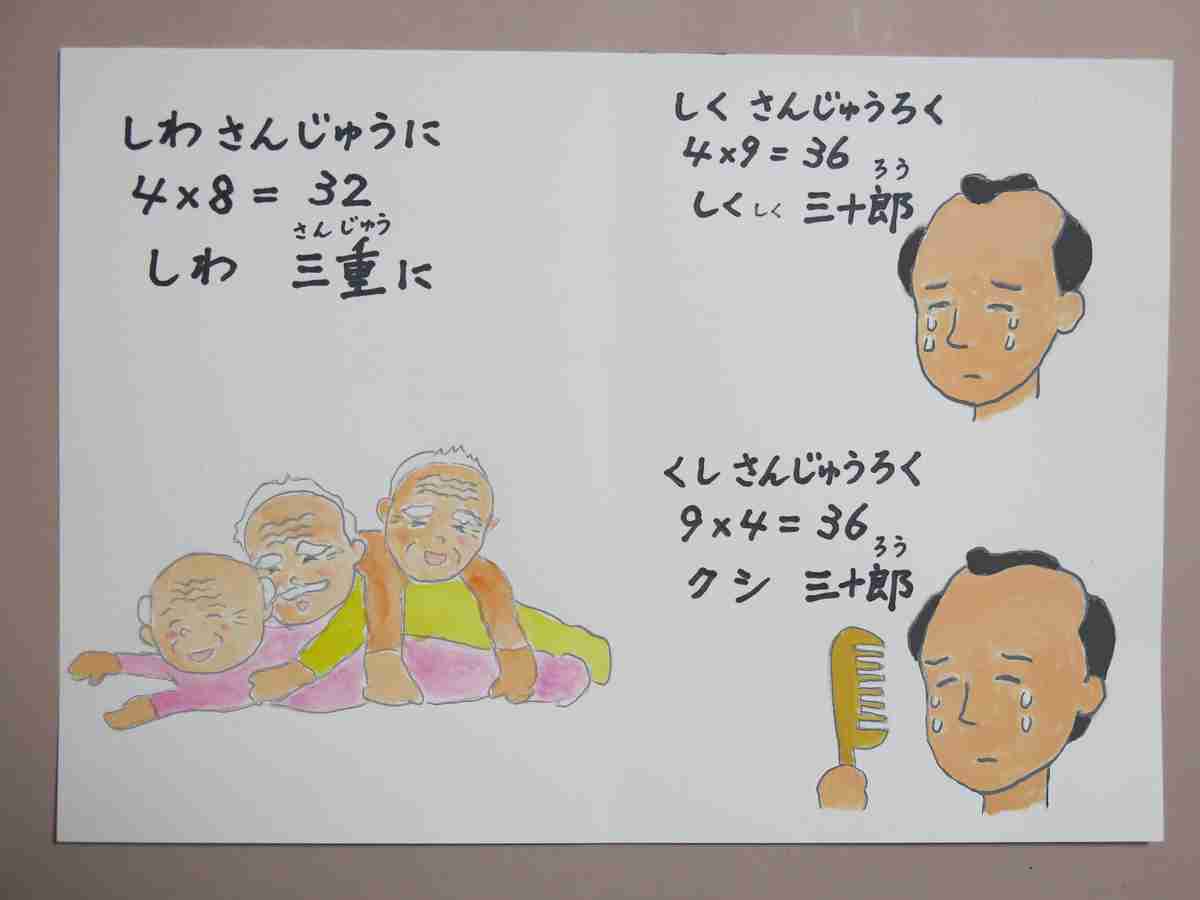 しわ さんじゅうに
4×8=32
さんじゅう
しわ 三重に
しく さんじゅうろく
4×9=36
ろう
しくしく 三十郎
くし さんじゅうろく
9×4=36
ろう
クシ 三十郎